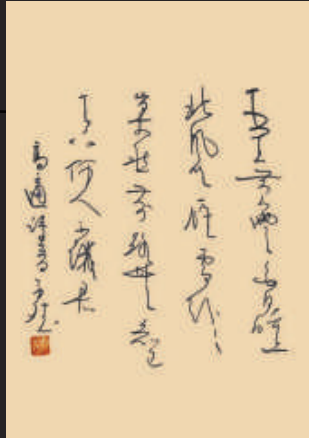 千里黄雲白日曛
北風吹雁雪紛紛
莫愁前路無知己
天下何人不識君
高適詩